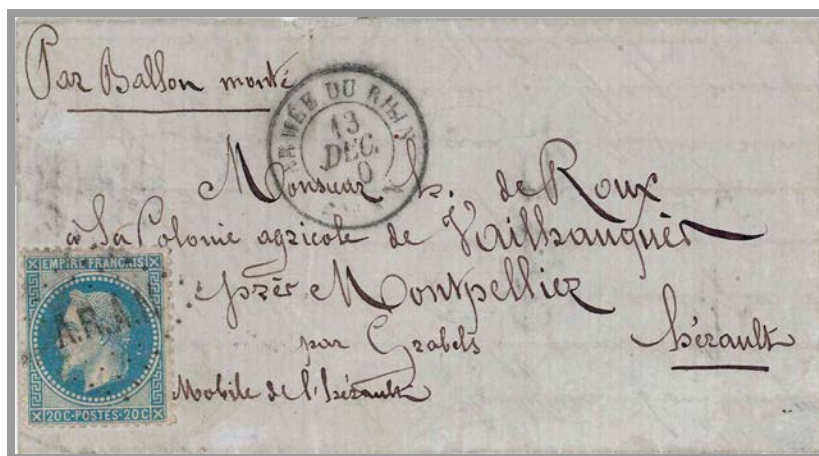 Par Ballon monté
ARMÉE DU RHIN
13
DEC.
0
Monsieur h. de Roux
à la Colonie agricole de Vailhauquès
près Montpellier
par Grabels
hérault
Mobile de l'hérault
EMPIRE FRANCAIS
A.R.A.
20C·POSTES·20C